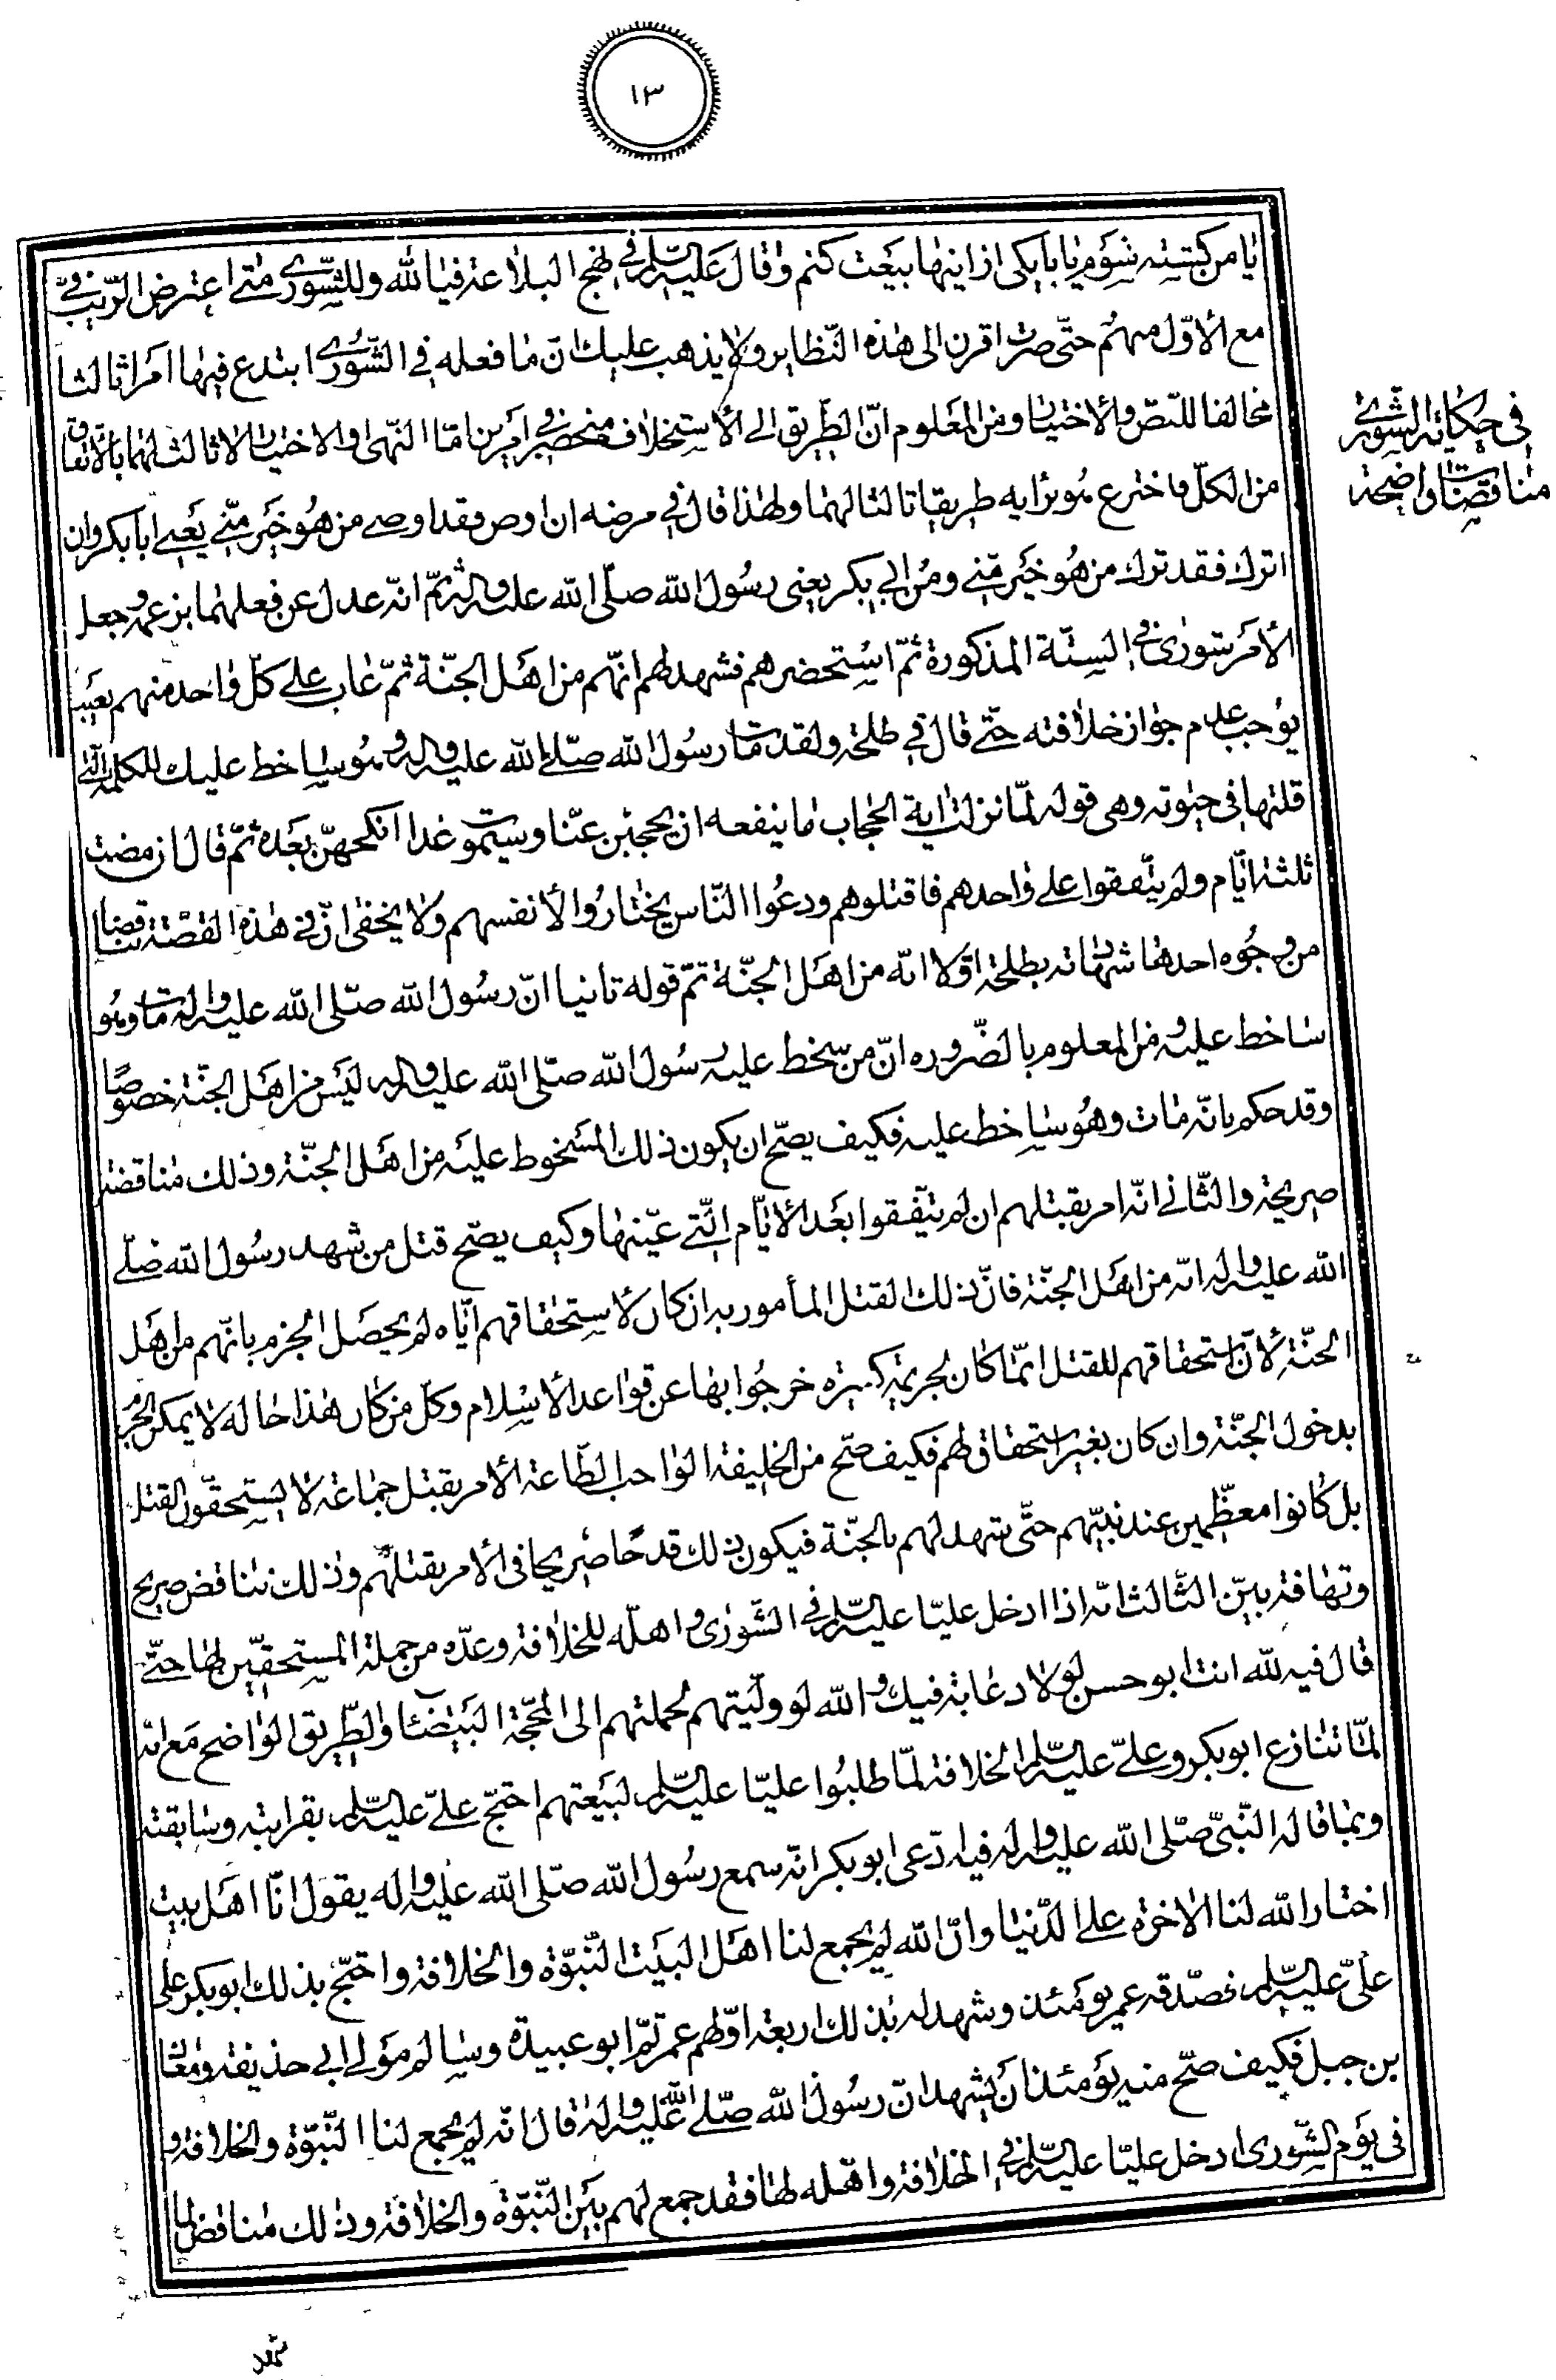 ١٣
يا من كشته شوم يا با يكى از اينها بيعت كنم وقال عليه السلام فى نهج البلاغة فيا لله وللشورى متى اعترض الريب فىّ
مع الأوّل منهم حتّى صرت اقرن الى هذه النّظاير ولا يذهب عليك انّ ما فعله فى الشّورى ابتدع فيها امرا ثالثا
مخالفا للنصّ والاختيار ومن المعلوم انّ الطّريق الى الأستخلاف منحصر فى امرين امّا النّص او الاختيار لا ثالث لهما بالاتفاق
من الكلّ فاخترع هو برايه طريقا ثالثا لهما ولهذا قال فى مرضه ان اوص فقد اوصى من هو خير منّى يعنى ابا بكر وان
اترك فقد ترك من هو خير منّى ومن ابى بكر يعنى رسول الله صلّى الله عليه واله ثمّ انّه عدل عن فعلهما بزعمه وجعل
الأمر شورى فى السّتّة المذكورة ثمّ استحضرهم فشهد لهم انّهم من اهل الجنّة ثمّ عاب على كلّ واحد منهم بعيب
يوجب عدم جواز خلافته حتّى قال فى طلحة ولقد مات رسول الله صلّى الله عليه واله وهو ساخط عليك للكلمة الّتى
قلتها فى حيوته وهى قوله لمّا نزلت اية الحجاب ما ينفعه ان يحجبهن عنّا وسيموت غدا انكحهنّ بعده ثمّ قال ان مضت
ثلثة ايّام ولم يتّفقوا على واحدهم فاقتلوهم ودعوا النّاس يختاروا لأنفسهم ولا يخفى انّ فى هذه القصّة تناقضا
من وجوه احدها شهادته بطلحة اوّلا انّه من اهل الجنّة ثمّ قوله ثانيا انّ رسول الله صلّى الله عليه واله مات وهو
ساخط عليه ومن المعلوم بالضّروره انّ من سخط عليه رسول الله صلّى الله عليه واله ليس من اهل الجنّة خصوصًا
وقد حكم بانّه مات وهو ساخط عليه فكيف يصحّ ان يكون ذلك المسخوط عليه من اهل الجنّة وذلك مناقضة
صريحة والثّانى انّه امر بقتلهم ان لم يتّفقوا بعد الأيّام الّتى عيّنها وكيف يصحّ قتل من شهد رسول الله صلّى
الله عليه واله انّه من اهل الجنّة فانّ ذلك القتل المأمور به ان كان لأستحقاقهم ايّاه لم يحصل الجزم بانّهم من اهل
الجنّة لأنّ استحقاقهم للقتل انّما كان بجريمة كبيرة خرجوا بها عن قواعد الأسلام وكلّ من كان هذا حاله لا يمكن الجزم
بدخول الجنّة وان كان بغير استحقاق لهم فكيف صحّ من الخليفة الواجب الطّاعة الأمر بقتل جماعة لا يستحقّون القتل
بل كانوا معظّمين عند نبيّهم حتّى شهد لهم بالجنّة فيكون ذلك قدحًا صريحا فى الأمر بقتلهم وذلك تناقض صريح
وتهافة بيّن الثّالث انّه اذا ادخل عليّا عليه السلام فى الشّورى واهله للخلافة وعدّه من جملة المستحقّين لها حتّى
قال فيه لله انت ابو حسن لولا دعابة فيك والله لو وليتهم لحملتهم الى المحجّة البيضا والطّريق الواضح مع انّه
لمّا تنازع ابو بكر وعلىّ عليه السلام الخلافة لمّا طلبوا عليّا عليه السلام لبيعتهم احتجّ علىّ عليه السلام بقرابته وسابقته
وبما قاله النّبىّ صلّى الله عليه واله فيه ادّعى ابو بكر انّه سمع رسول الله صلّى الله عليه واله يقول انّا اهل بيت
اختار الله لنا الاخرة على الدّنيا وانّ الله لم يجمع لنا اهل البيت النّبوّة والخلافة واحتجّ بذلك ابو بكر على
علىّ عليه السلام فصدّقه عمر يومئذ وشهد له بذلك اربعة اوّلهم عمر ثمّ ابو عبيدة وسالم مولى ابى حذيفة ومعاذ
بن جبل فكيف صحّ منه يومئذ ان يشهد انّ رسول الله صلّى الله عليه واله قال انّه لم يجمع لنا النّبوّة والخلافة و
فى يوم الشّورى ادخل عليّا عليه السلام فى الخلافة واهله لها فقد جمع لهم بين النّبوّة والخلافة وذلك مناقض لما
فى حكاية الشورى
مناقضات واضحة